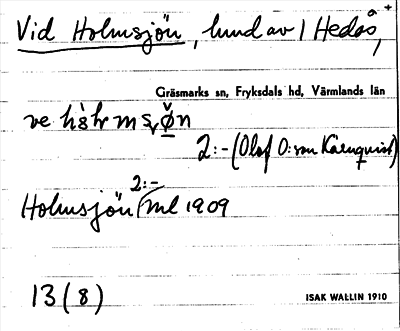 Vid Holmsjön, lund av 1 Hedås,
Gräsmarks sn, Fryksdals hd, Värmlands län
2:-(Olof O:son Kärnquist)
2:-
Holmsjön ml 1909
13(8)
ISAK WALLIN 1910